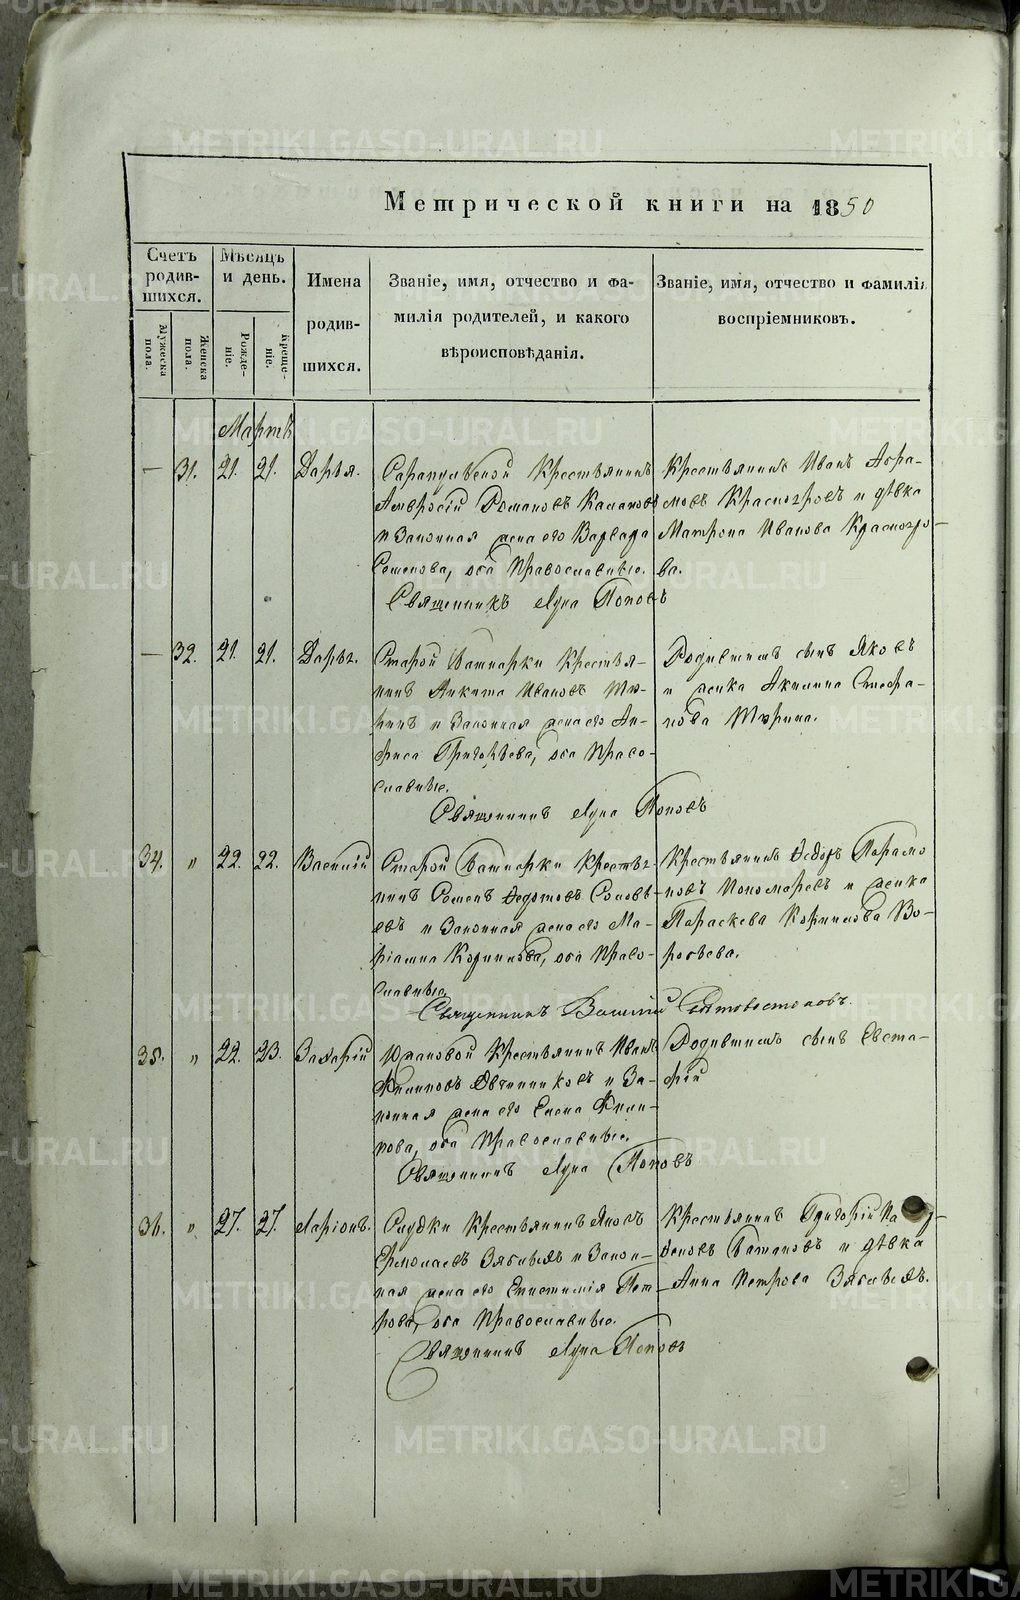 METRIKI.GASO-URAL.RU
Метрической книги на 1850
Счетъ родив- шихся.
Мужеска пола.
Женска пола.
Мѣсяцъ и день.
Рожде- ніе.
Креще- ніе.
Имена родив- шихся.
Званіе, имя, отчество и фа- милія родителей, и какого вѣроисповѣданія.
Званіе, имя, отчество и фамилія воспріемниковъ.
Мартъ
— 31. 21. 21. Дарья.
Крестьянинъ
Амвросій Романовъ
и Законная жена его Варвара
Семенова, оба Православные.
Священникъ Лука Поповъ
Крестьянинъ Иванъ Абра-
мовъ Красногоровъ и дѣвка
Матрона Иванова Красногоро-
ва.
— 32. 21. 21. Дарья.
Старой Крестья-
нинъ Никита Ивановъ Тю-
ринъ и Законная жена его Ан-
фиса Григорьева, оба Право-
славные.
Священникъ Лука Поповъ
Родившихъ сынъ Яковъ
и женка Акилина Стефа-
нова Тюрина.
34. „ 22. 22. Василій
Старой Крестья-
нинъ Семенъ Федотовъ Соловь-
евъ и Законная жена его Ма-
ріамна оба Право-
славные.
Священникъ Василій
Крестьянинъ Федоръ Парамо
новъ Пономаревъ и женка
Параскева Во-
робьева.
35. „ 22. 23. Захарій
Южаковой Крестьянинъ Иванъ
Филиповъ Овчинниковъ и За-
конная жена его Елена Фили-
пова, оба Православные.
Священникъ Лука Поповъ
Родившихъ сынъ Евста-
фій
36. „ 27. 27. Ларіонъ.
Слудки Крестьянинъ Яковъ
Ермолаевъ Зяблыхъ и Закон-
ная жена его Епистимія Пет-
рова, оба Православные.
Священникъ Лука Поповъ
Крестьянинъ Григорій
и дѣвка
Анна Петрова Зяблыхъ.